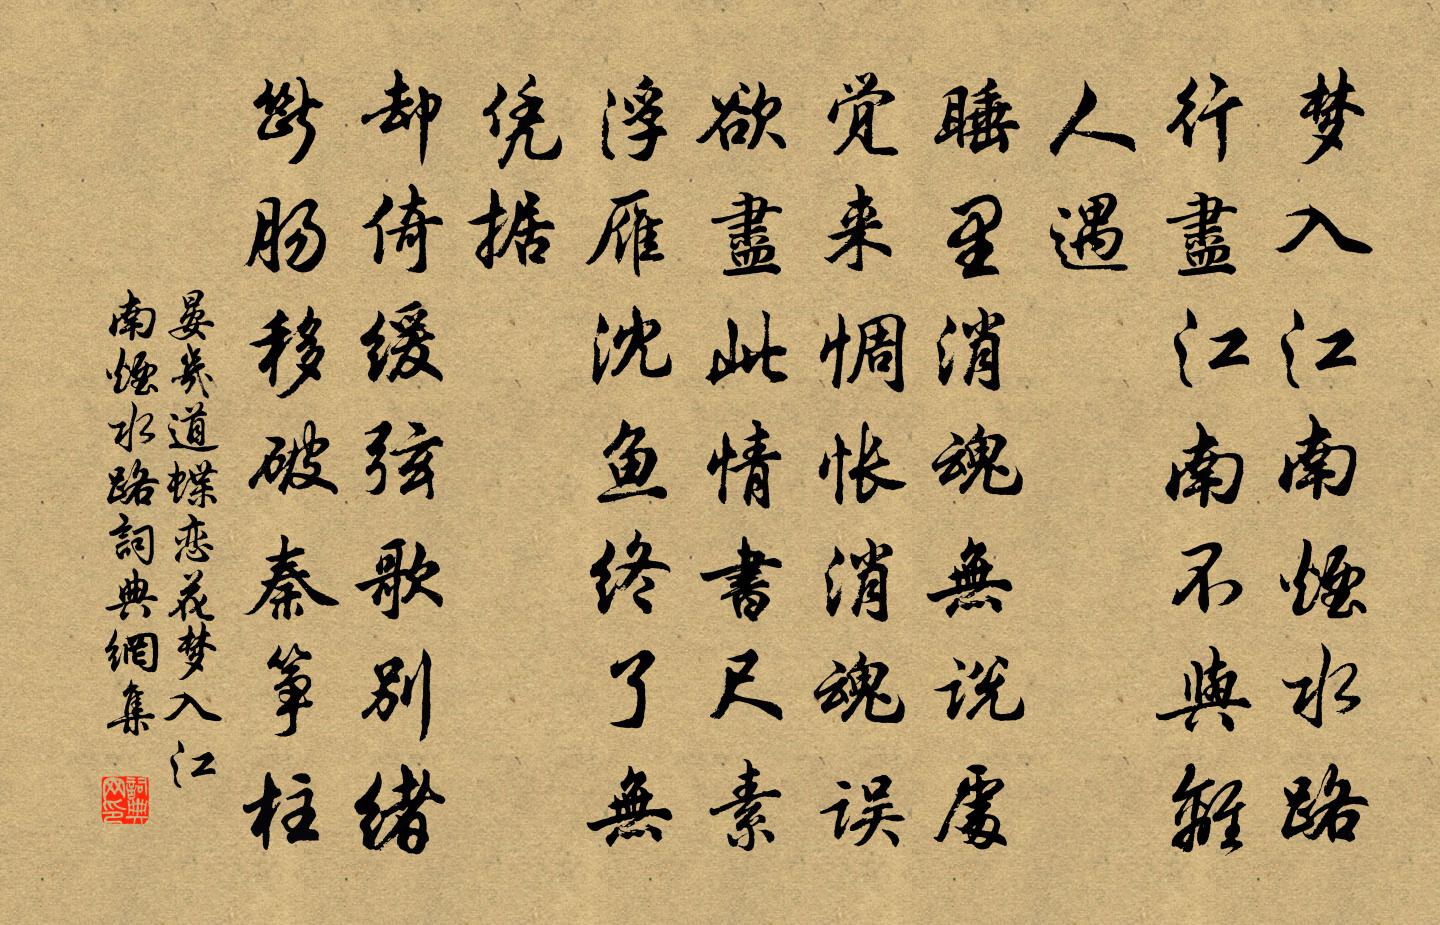 梦入江南煙水路
行盡江南不與離
人遇
睡里消魂無说處
觉来惆怅消魂误
欲盡此情書尺素
浮雁沈鱼终了無
凭据
却倚缓弦歌别绪
断肠移破秦筝柱
晏幾道蝶恋花梦入江
南煙水路詞典網集
詞典网印